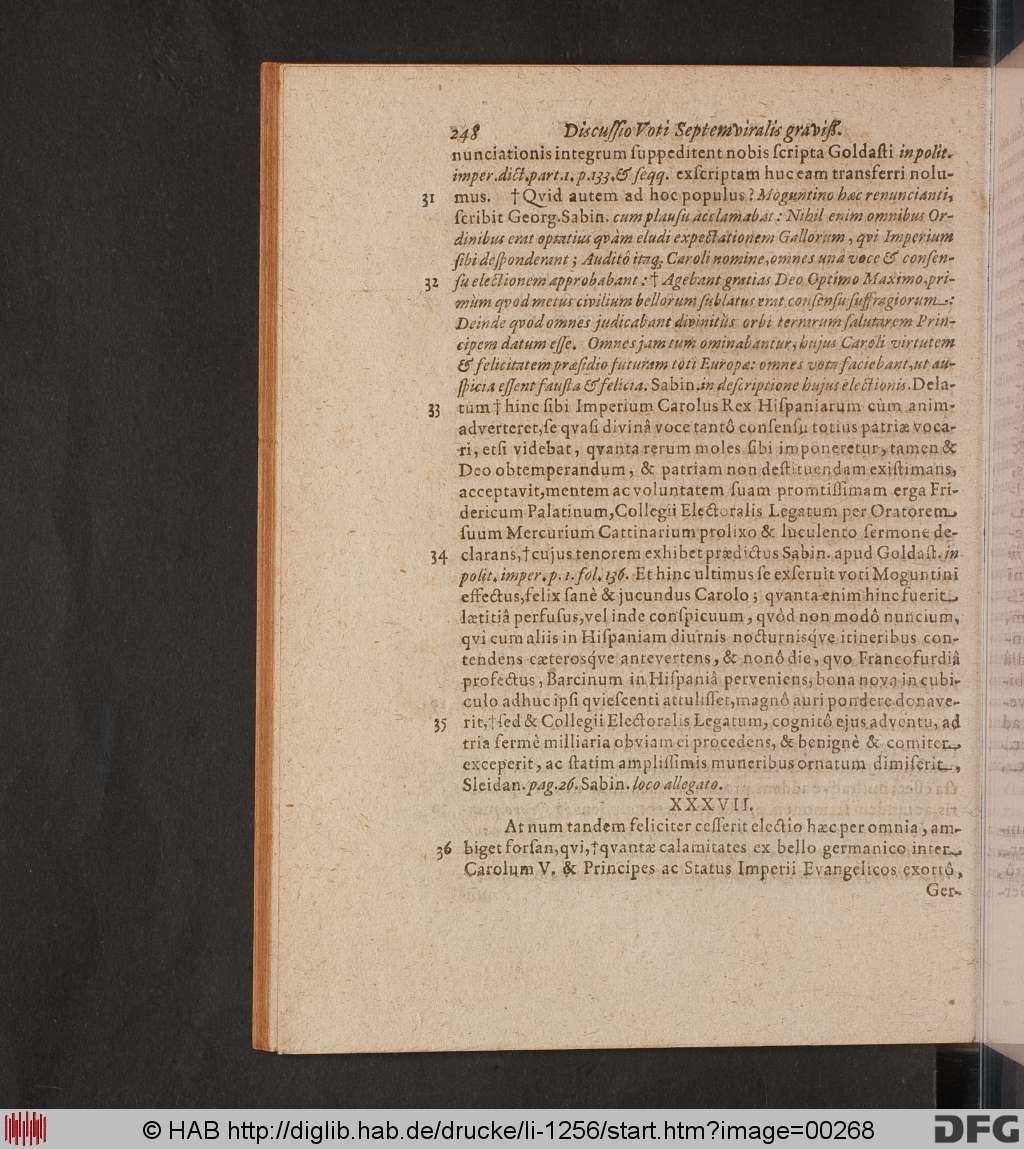 248 Discussio Voti Septemviralis graviss.
nunciationis integrum suppeditent nobis scripta Goldasti in polit.
imper. dict. part. 1. p. 133. & seqq. exscriptam huc eam transferri nolu-
31 mus. † Qvid autem ad hoc populus? Moguntino hæc renuncianti,
scribit Georg. Sabin. cum plausu acclamabat: Nihil enim omnibus Or-
dinibus erat optatius qvàm eludi expectationem Gallorum, qvi Imperium
sibi desponderant; Auditô itaq; Caroli nomine, omnes unâ voce & consen-
32 su electionem approbabant: † Agebant gratias Deo Optimo Maximo, pri-
mùm qvod metus civilium bellorum sublatus erat consensu suffragiorum:
Deinde qvod omnes judicabant divinitùs orbi terrarum salutarem Prin-
cipem datum esse. Omnes jam tum ominabantur, hujus Caroli virtutem
& felicitatem præsidio futuram toti Europæ: omnes vota faciebant, ut au-
spicia essent fausta & felicia. Sabin. in descriptione hujus electionis. Dela-
33 tum † hinc sibi Imperium Carolus Rex Hispaniarum cùm anim-
adverteret, se qvasi divinâ voce tantô consensu totius patriæ voca-
ri, etsi videbat, qvanta rerum moles sibi imponeretur, tamen &
Deo obtemperandum, & patriam non destituendam existimans,
acceptavit, mentem ac voluntatem suam promtissimam erga Fri-
dericum Palatinum, Collegii Electoralis Legatum per Oratorem
suum Mercurium Cattinarium prolixo & luculento sermone de-
34 clarans, † cujus tenorem exhibet prædictus Sabin. apud Goldast. in
polit. imper. p. 1. fol. 136. Et hinc ultimus se exseruit voti Moguntini
effectus, felix sanè & jucundus Carolo; qvanta enim hinc fuerit
lætitiâ perfusus, vel inde conspicuum, qvòd non modô nuncium,
qvi cum aliis in Hispaniam diurnis nocturnisq́ve itineribus con-
tendens cæterosq́ve antevertens, & nonô die, qvo Francofurdiâ
profectus, Barcinum in Hispaniâ perveniens, bona nova in cubi-
culo adhuc ipsi qviescenti attulisset, magnô auri pondere donave-
35 rit, † sed & Collegii Electoralis Legatum, cognitô ejus adventu, ad
tria fermè milliaria obviam ei procedens, & benignè & comiter
exceperit, ac statim amplissimis muneribus ornatum dimiserit,
Sleidan. pag. 26. Sabin. loco allegato.
XXXVII.
At num tandem feliciter cesserit electio hæc per omnia, am-
36 biget forsan, qvi, † qvantæ calamitates ex bello germanico inter
Carolum V. & Principes ac Status Imperii Evangelicos exortô,
Ger-
© HAB http://diglib.hab.de/drucke/li-1256/start.htm?image=00268
DFG